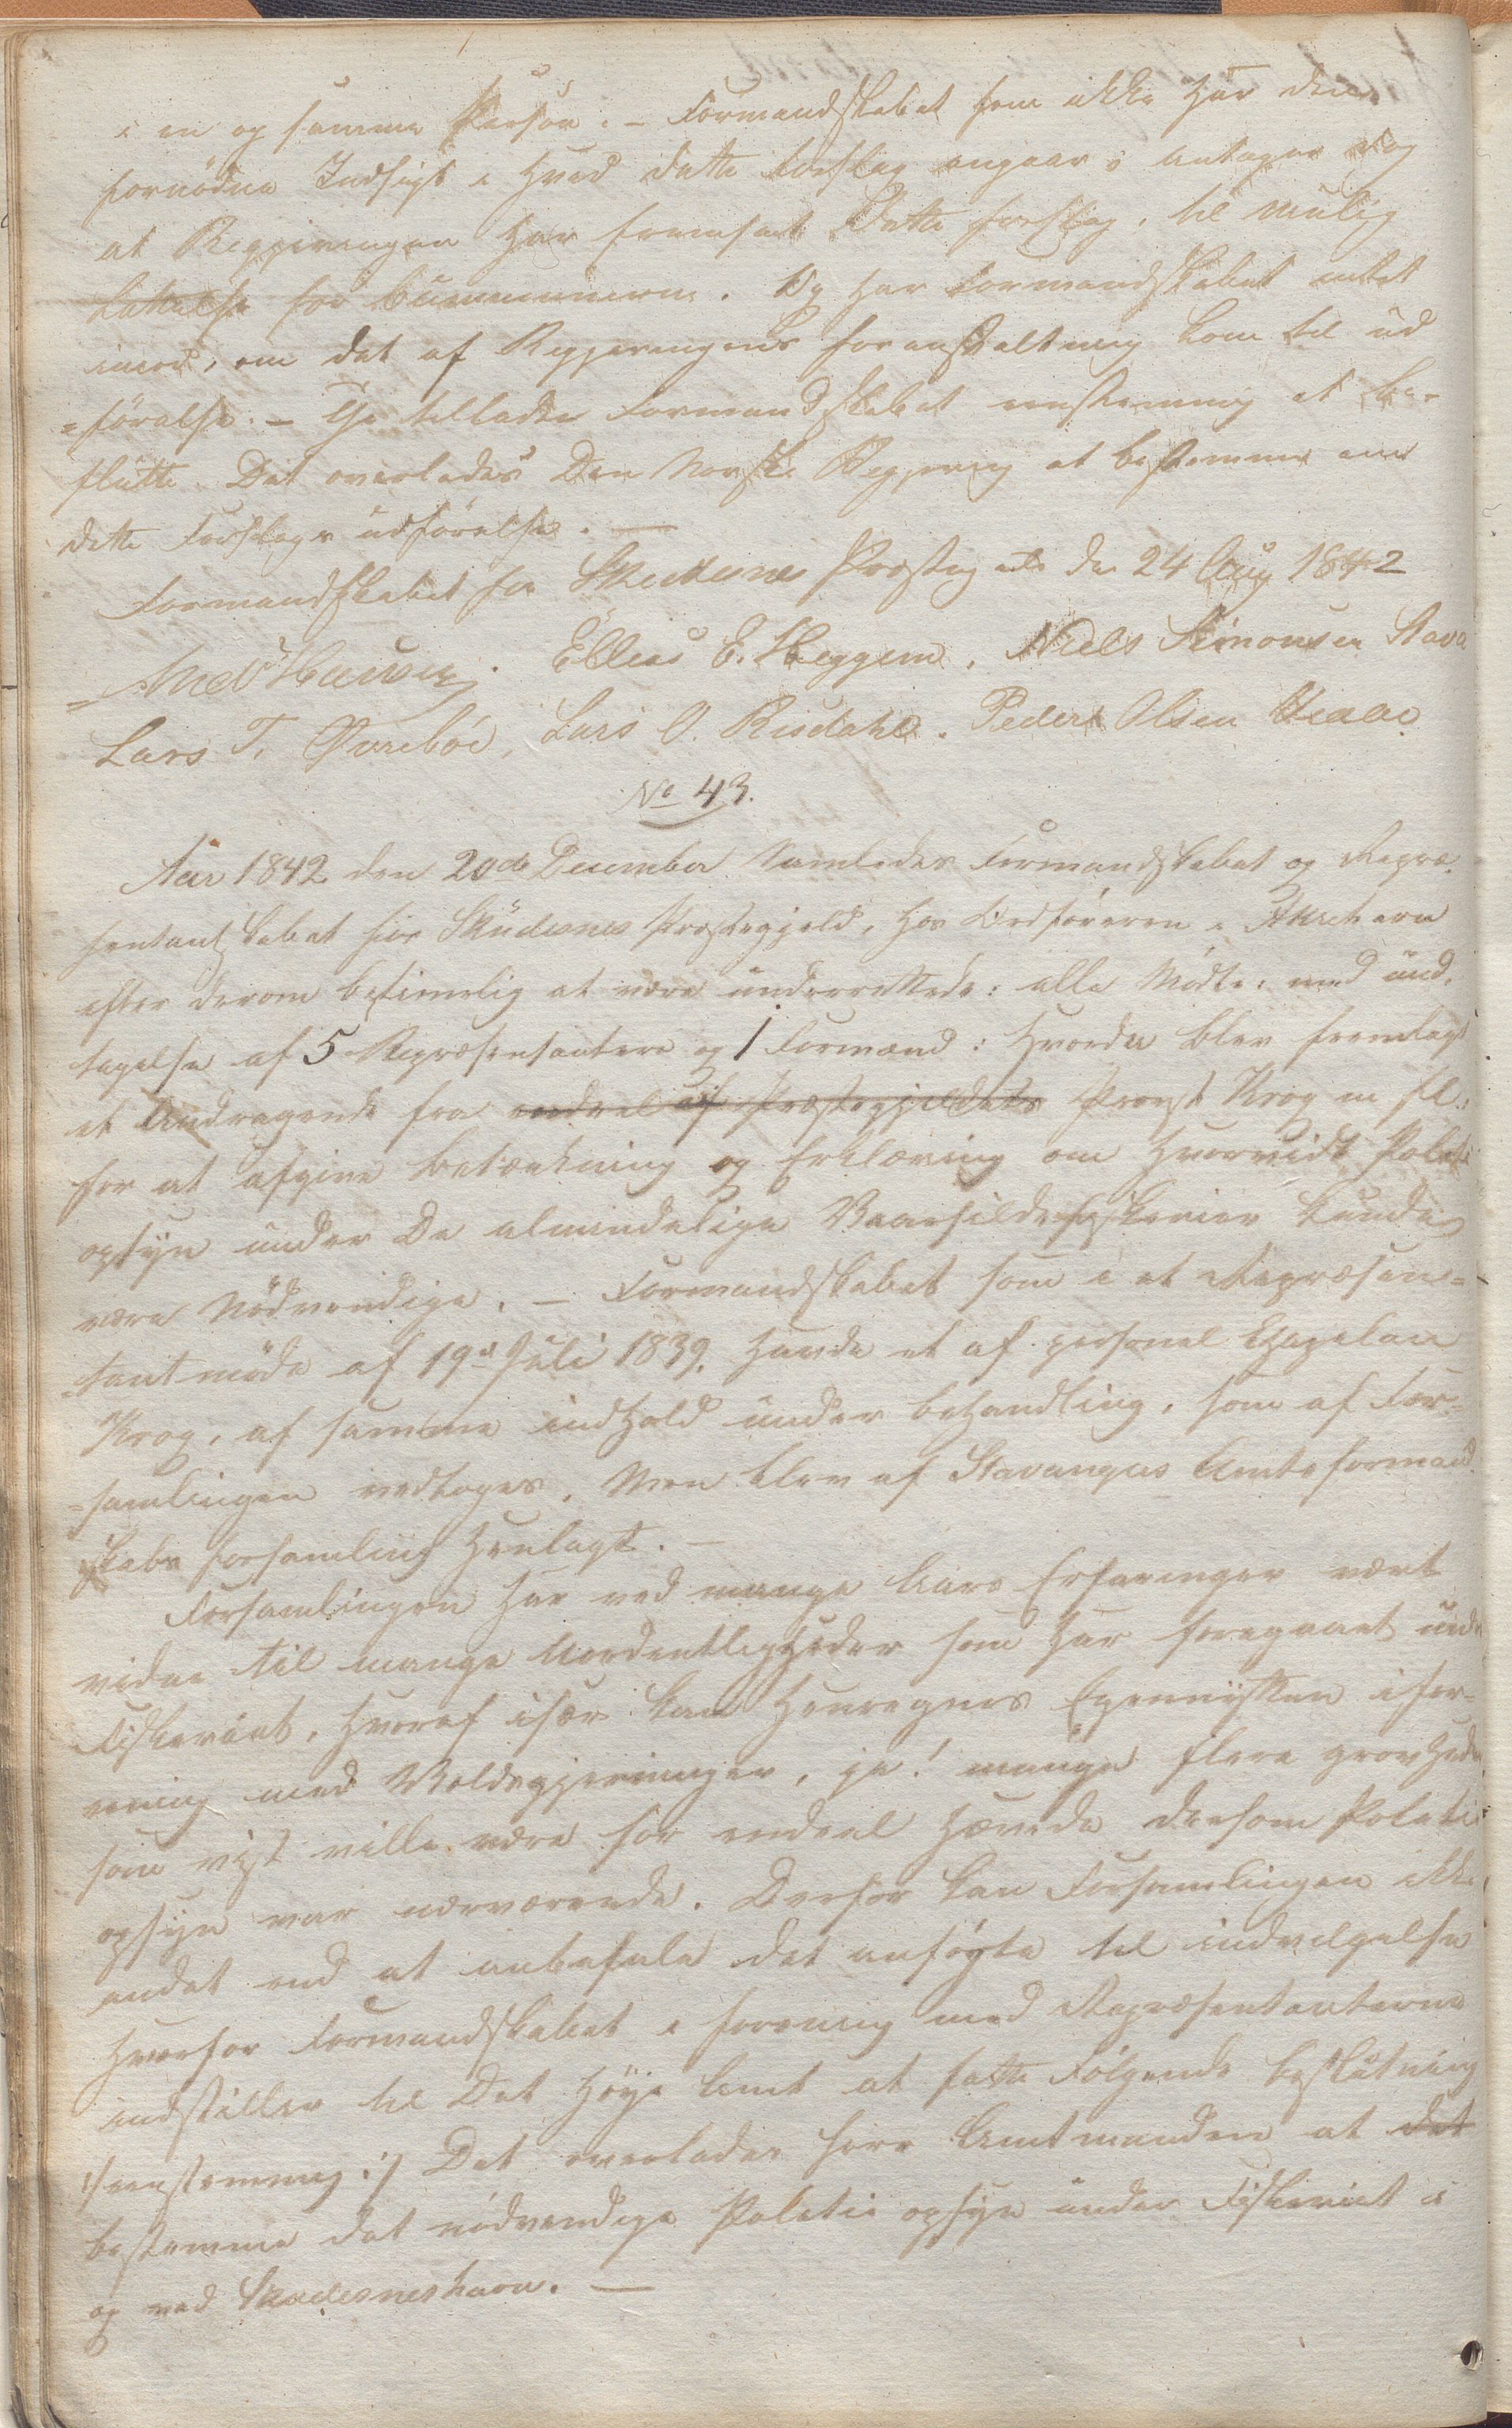 i en og samme Person. – Formandskabet som ikke har den
fornödne Indsigt i hvad dette Forslag angaar; antager dog
at Regjeringen har fremsat dette forslag, til mulig
Lettelse for Communerne. Og har Formandskabet intet
imod, om det af Regjeringens foranstaltning kom til ud
=förelse. – Thi tillader Formandskabet eenstemmig at be-
slutte. Det overlades Den Norske Regjering at bestemme om
dette Forslags udförelse. —
Formandskabet for Skudesnes Præstegjeld den 24 Aug 1842
Elleas E. Heggem, Niels Simonsen Stava
Lars T. Qvaleböe, Lars O. Risdahl. Peder Olsen
No 43.
Aar 1842 den 20de December Samledes Formandskabet og Repræ-
sentantskabet for Skudesnes Præstegjeld, hos Ordföreren i Akrehavn
efter derom betimelig at være underrettede: alle Mödte: med und-
tagelse af 5 Repræsentantere og 1 Formand: hvorda blev fremlagt
et Andragende fra endeel af Præstegjeldets Provst Krog m fl:
for at afgive betænkning og Erklæring om hvorvidt Politi
opsyn under De almindelige Vaarsildefiskerier kunde
være Nödvendige. – Formandskabet som i et Repræsen=
=tantmöde af 19de Juli 1839, havde et af personel Capelan
Krog, af samme indhold under behandling, som af For-
=samlingen vedtoges. Men blev af Stavangers Amtsformand-
skabs forsamling henlagt. –
Forsamlingen har ved mange Aars Erfaringer vært
vidne til mange Uordentligheder som har foregaaet unde
Fiskeriet, hvoraf især kan henregnes Egennytten i for-
rening med Voldsgjerninger, ja! mange flere grovheder
som vist ville være for endeel hævede dersom Politi
opsyn var nærværende. Derfor kan Forsamlingen ikke
andet end at anbefale det ansögte til indvilgelse
hvorfor Formandskabet i forening med Repræsentanterne
indstiller til Det höye Amt at fatte Fölgende beslutning
:/eenstemmig:/ Det overlades herr Amtmanden at det
bestemme det nödvendige Politie opsyn under Fiskeriet i
og ved Skudesneshavn. —